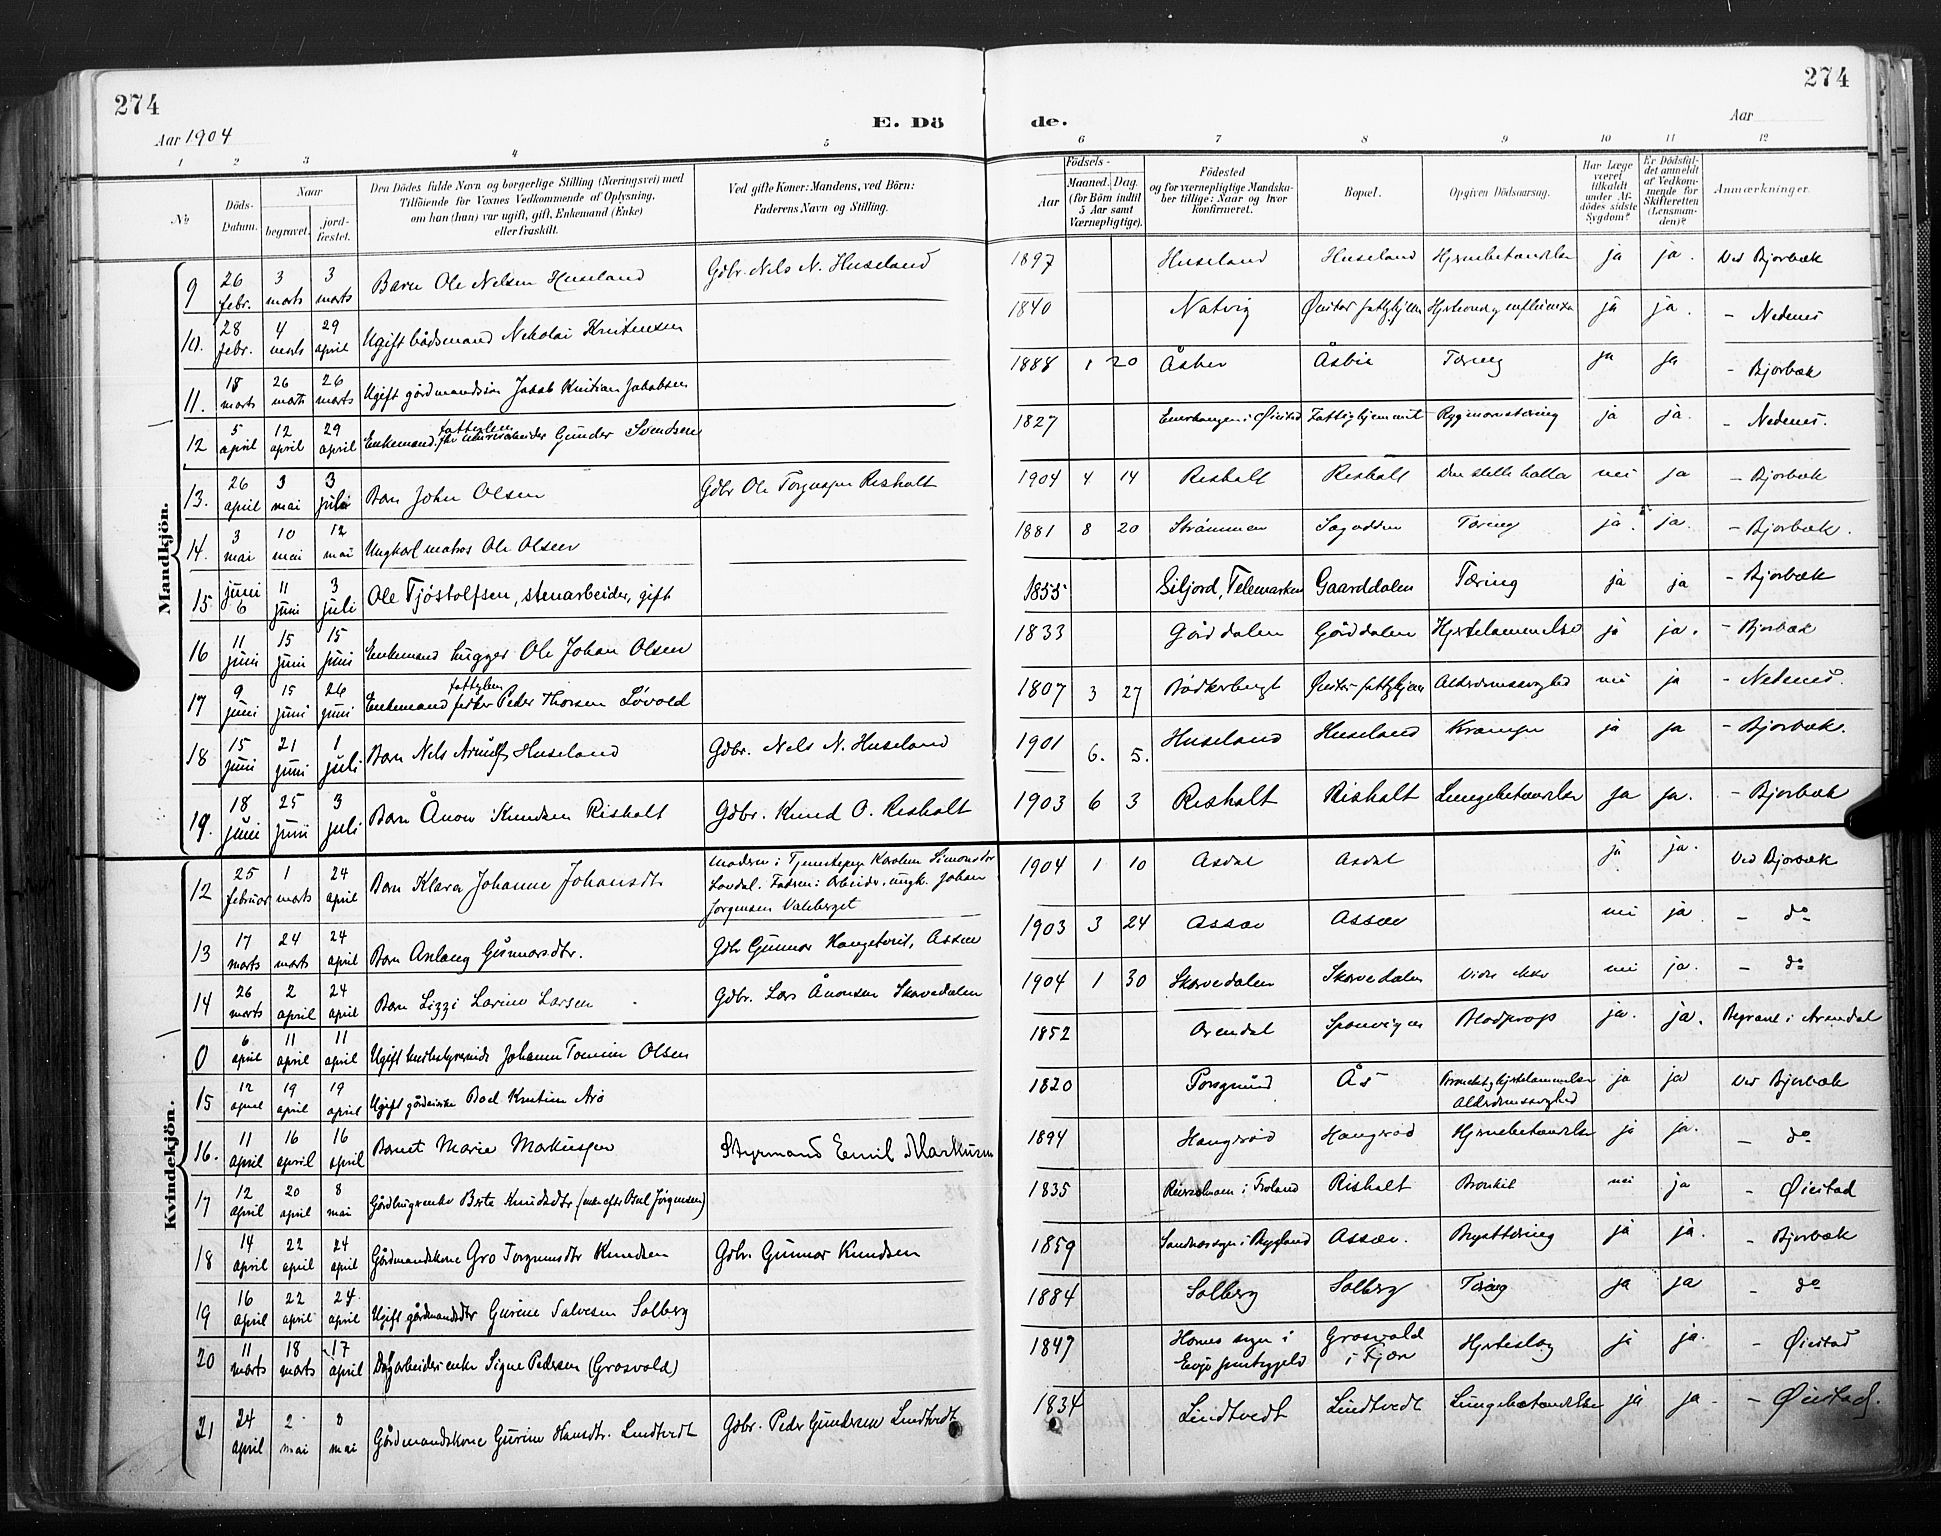 274
274
Aar 1904
E. Dö de.
Aar
1 2 3 4 5 6 7 8 9 10 11 12
№
Döds-Datum.
Naar
begravet.
jord-fæstet.
Den Dödes fulde Navn og borgerlige Stilling (Næringsvei) med Tilföiende for Voxnes Vedkommende af Oplysning, om han (hun) var ugift, gift, Enkemand (Enke) eller fraskilt.
Ved gifte Koner: Mandens, ved Börn: Faderens Navn og Stilling.
Födsels-
Aar
Maaned. Dag.
(for Börn indtil 5 Aar samt Værnepligtige).
Födested og for værnepligtige Mandska-ber tillige: Naar og hvor konfirmeret.
Bopæl.
Opgiven Dödsaarsag.
Har Læge været tilkaldt under Af-dödes sidste Sygdom?
Er Dödsfal-det anmeldt af Vedkom-mende for Skifteretten (Lensman-den)?
Anmærkninger.
Mandkjön.
9 26 febr. 3 marts 3 marts Barn Ole Nelsen Huseland Gdbr. Nels N. Huseland 1897 Huseland Huseland Hjernebetændelse ja ja. Ved Bjorbæk
10. 28 febr. 4 marts 29 april Ugift bådsmand Nikolai Kristensen 1840 Natvig ja ja. - Nedenes
11. 18 marts 26 marts 26 marts Ugift gårdmandssön Jakob Kristian Jakobsen 1888 1 20 Åsbie Åsbie Tæring ja ja - Bjorbæk
12 5 april 12 april 29 april Enkemand, fattiglem Gunder Svendsen 1827 Fattighjemmet Rygmarvstæring ja ja. - Nedenes.
13. 26 april 3 mai 3 juli Barn John Olsen Gdbr Ole Torgussen Risholt 1904 4 14 Risholt Risholt nei ja - Bjorbæk
14. 3 mai 10 mai 12 mai Ungkarl matros Ole Olsen 1881 8 20 Strömmen Sagodden Tæring ja. ja. - Bjorbæk.
15. juni 6 11 juni 3 juli Ole Tjöstolfsen, stenarbeider, gift 1855 Siljord, Telemarken Gaarddalen Tæring ja ja - Bjorbæk
16 11 juni 15 juni 15 juni Enkemand hugger Ole Johan Olsen 1833 Gårddalen Gårddalen Hjertelammelse ja ja. - Bjorbæk
17 9 juni 15 juni 26 juni Enkemand fattiglem fisker Peder Thorsen Løvold 1807 3 27 Alderdomssvaghed nei ja - Nedenes.
18 15 juni 21 juni 1 juli Barn Nels Arnulf Huseland Gdbr. Nels N. Huseland 1901 6. 5. Huseland Huseland Krampe ja ja - Bjorbæk.
19. 18 juni 25 juni 3 juli Barn Ånon Knudsen Risholt Gdbr. Knud O. Risholt 1903 6 3 Risholt Risholt Lungebetændelse ja ja. - Bjorbæk
Kvindekjön.
12 25 februar 1 marts 24 april Barn Klara Johanne Johansdtr Moderen: Tjenestepige Karoline Simonsdtr Løvdal. Faderen: Arbeider, ungk. Johan Jörgensen Valeberget 1904 1 10 Asdal Asdal ja ja. Ved Bjorbæk
13 17 marts 24 marts 24 april Barn Aslaug Gunnarsdtr. Gdbr Gunnar Haugetveit, Assæv 1903 3 24 Assæv Assæv nei ja - do
14 26 marts 2 april 24 april Barn Lizzi Larine Larsen Gdbr. Lars Ånonsen Skarvedalen 1904 1 30 Skarvedalen Skarvedalen Vides ikke nei ja. - do
0 6 april 11 april 11 april Ugift husbestyrerinde Johanne Tomine Olsen 1852 Arendal Spærvigen Blodprop ja. ja. Begravet i Arendal
15 12 april 19 april 19 april Ugift Boel Kristine Arö 1820 Porsgrund Ås Bronkit, hjertelammelse Alderdomssvaghed ja ja Ved Bjorbæk
16. 11 april 16 april 16 april Barnet Marie Markussen Styrmand Emil Markussen 1894 Haugeröd Haugeröd Hjernebetændelse ja ja. - do
17 12 april 20 april 8 mai Gårdbrugerenke Berte Knudsdtr (enke efter Boul Jörgensen) 1835 i Froland Risholt Bronkit nei ja - Øiestad
18 14 april 22 april 24 april Gårdmandskone Gro Torgrimsdtr Knudsen Gdbr. Gunnar Knudsen 1859 Sandnes sogn i Bygland Assæv. Brysttæring ja ja. - Bjorbæk
19 16 april 22 april 24 april Ugift gårdmandsdtr Gurine Salvesen Solberg 1884 Solberg Solberg Tæring ja ja - do
20 11 marts 18 marts 17 april Dagarbeiderenke Signe Pedersen (Grosvold) 1847 Hornes sogn i Evje prestegjeld Grosvold i Fjære Hjerteslag ja ja. - Øiestad
21 24 april 2 mai 8 mai Gårdmandskone Gurine Hansdtr. Lindtvedt Gdbr. Peder Gundersen Lindtvedt 1834 Lindtvedt Lindtvedt Lungebetændelse ja ja. - Øiestad.